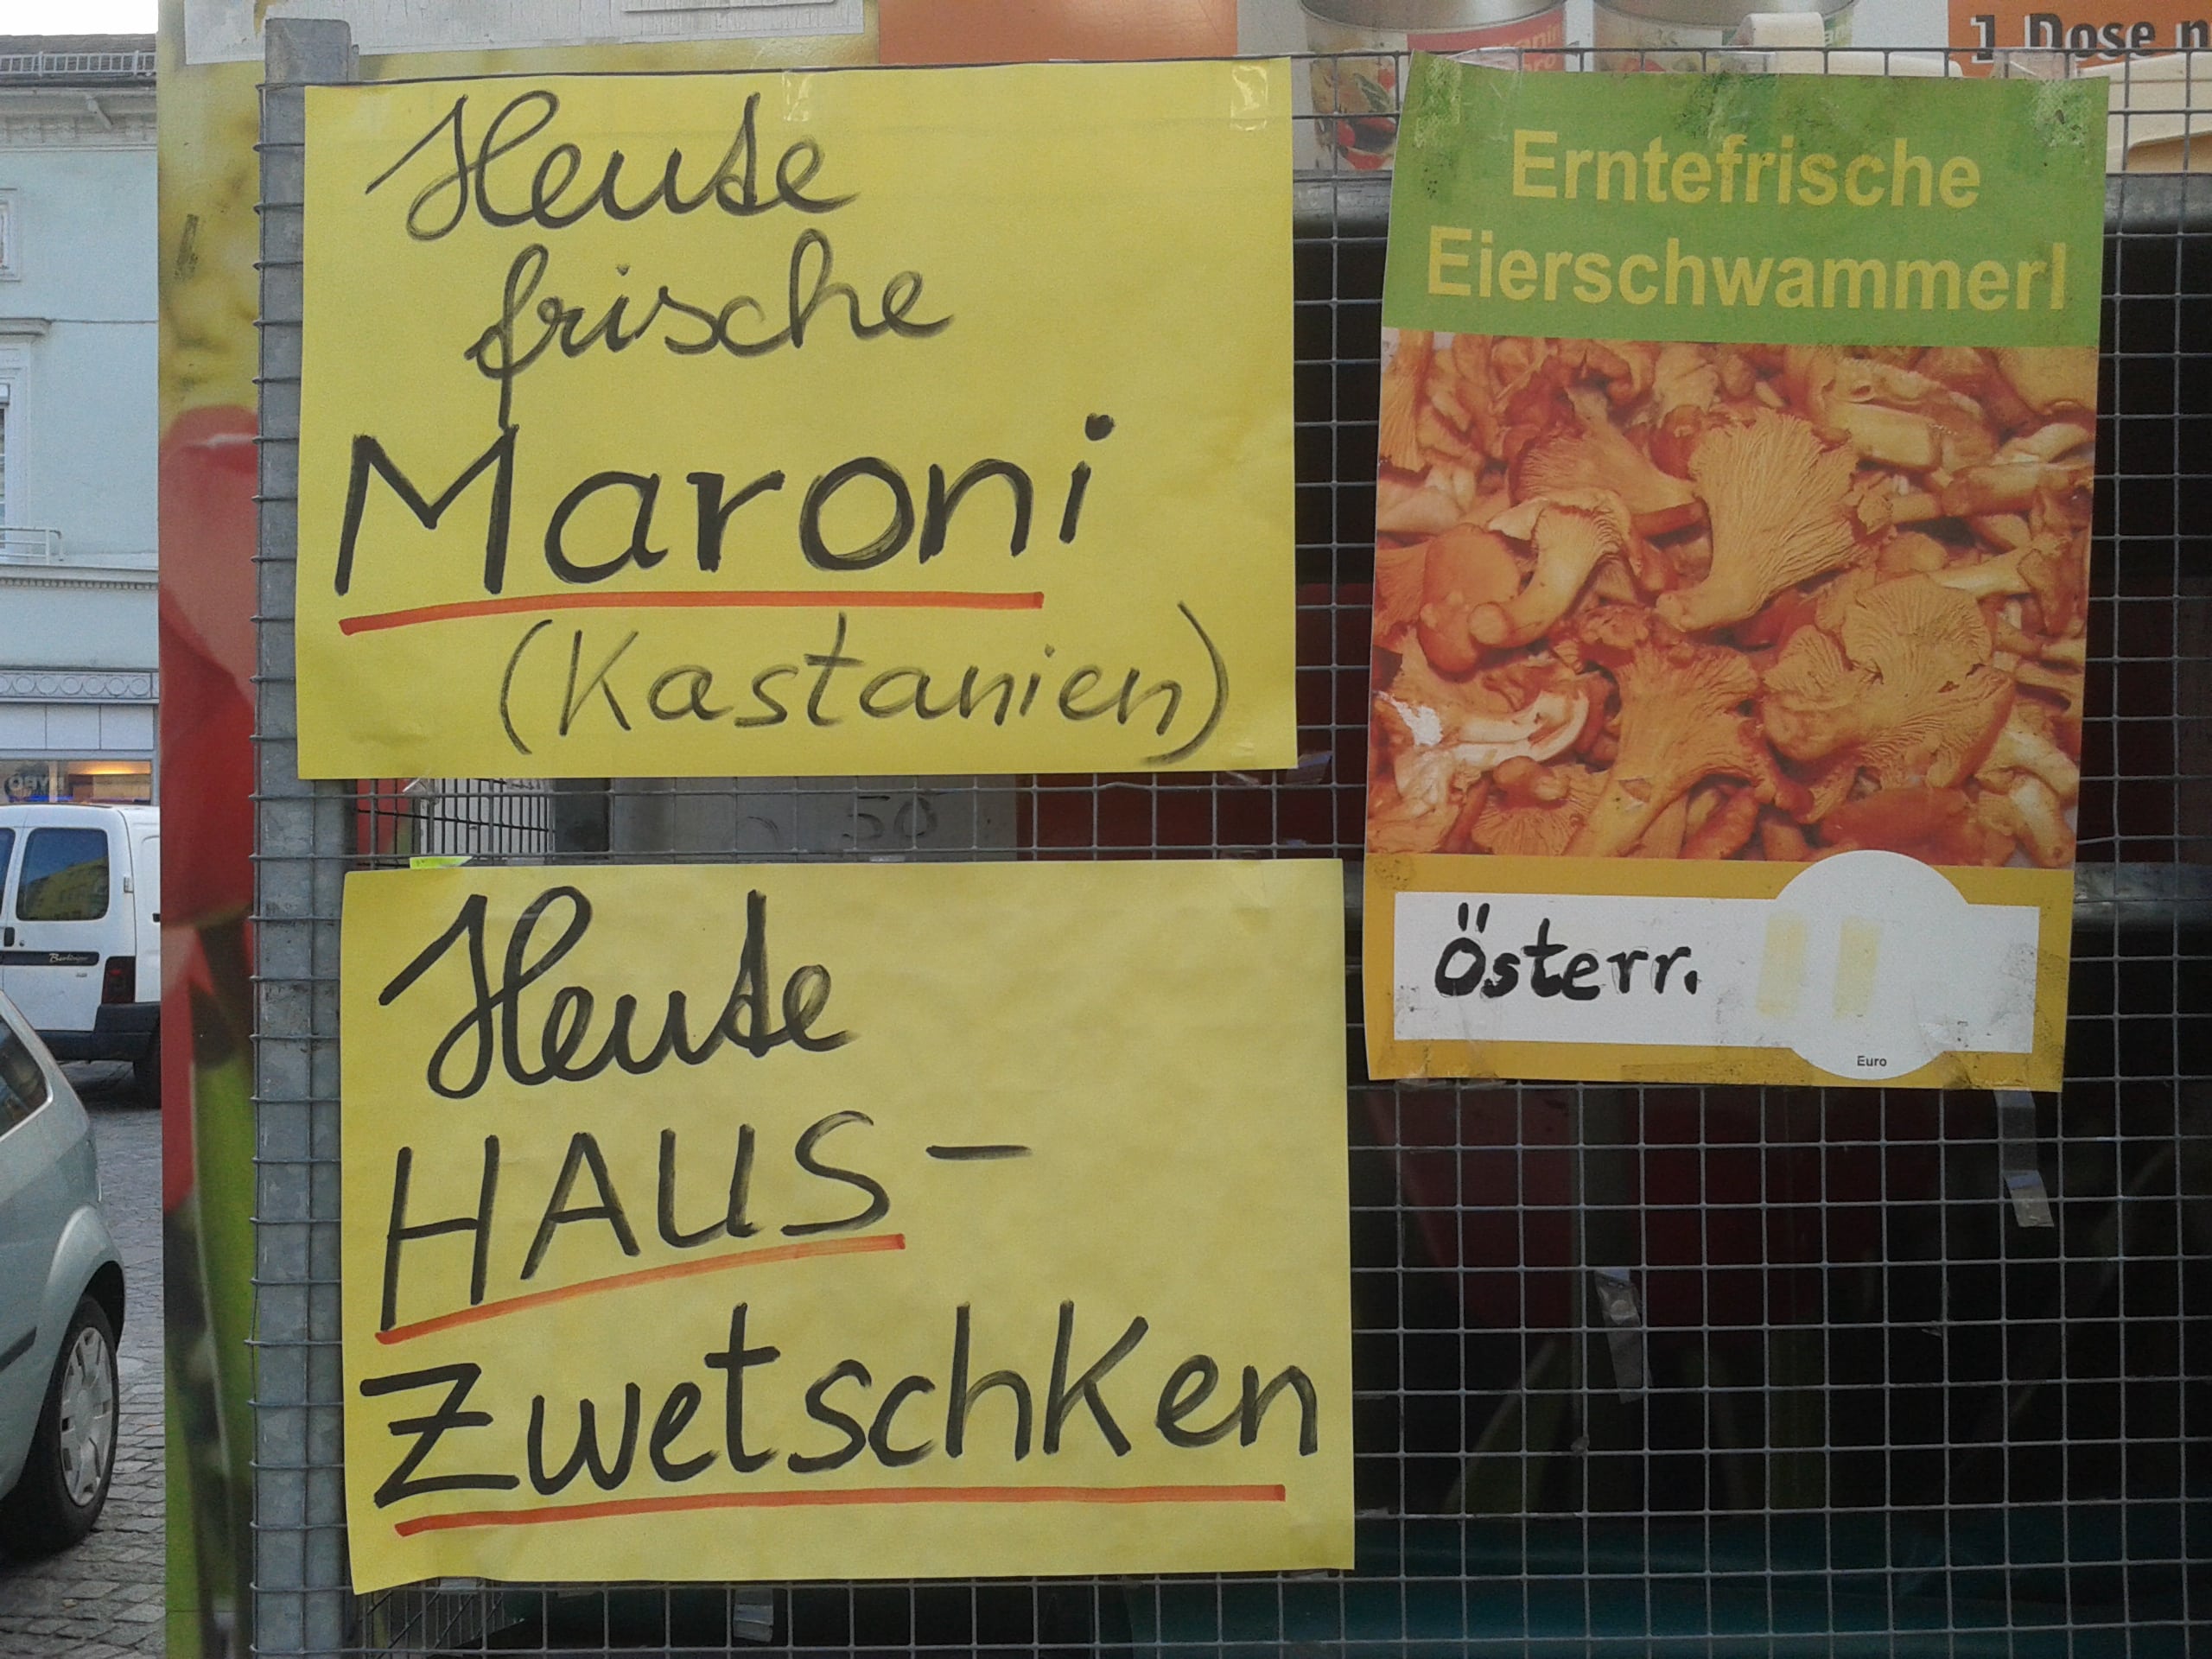 Heute
frische
Maroni
(Kastanien)
Heute
HAUS-
Zwetschken
Erntefrische
Eierschwammerl
Österr.
Euro
1 Dose
50
Berlingo